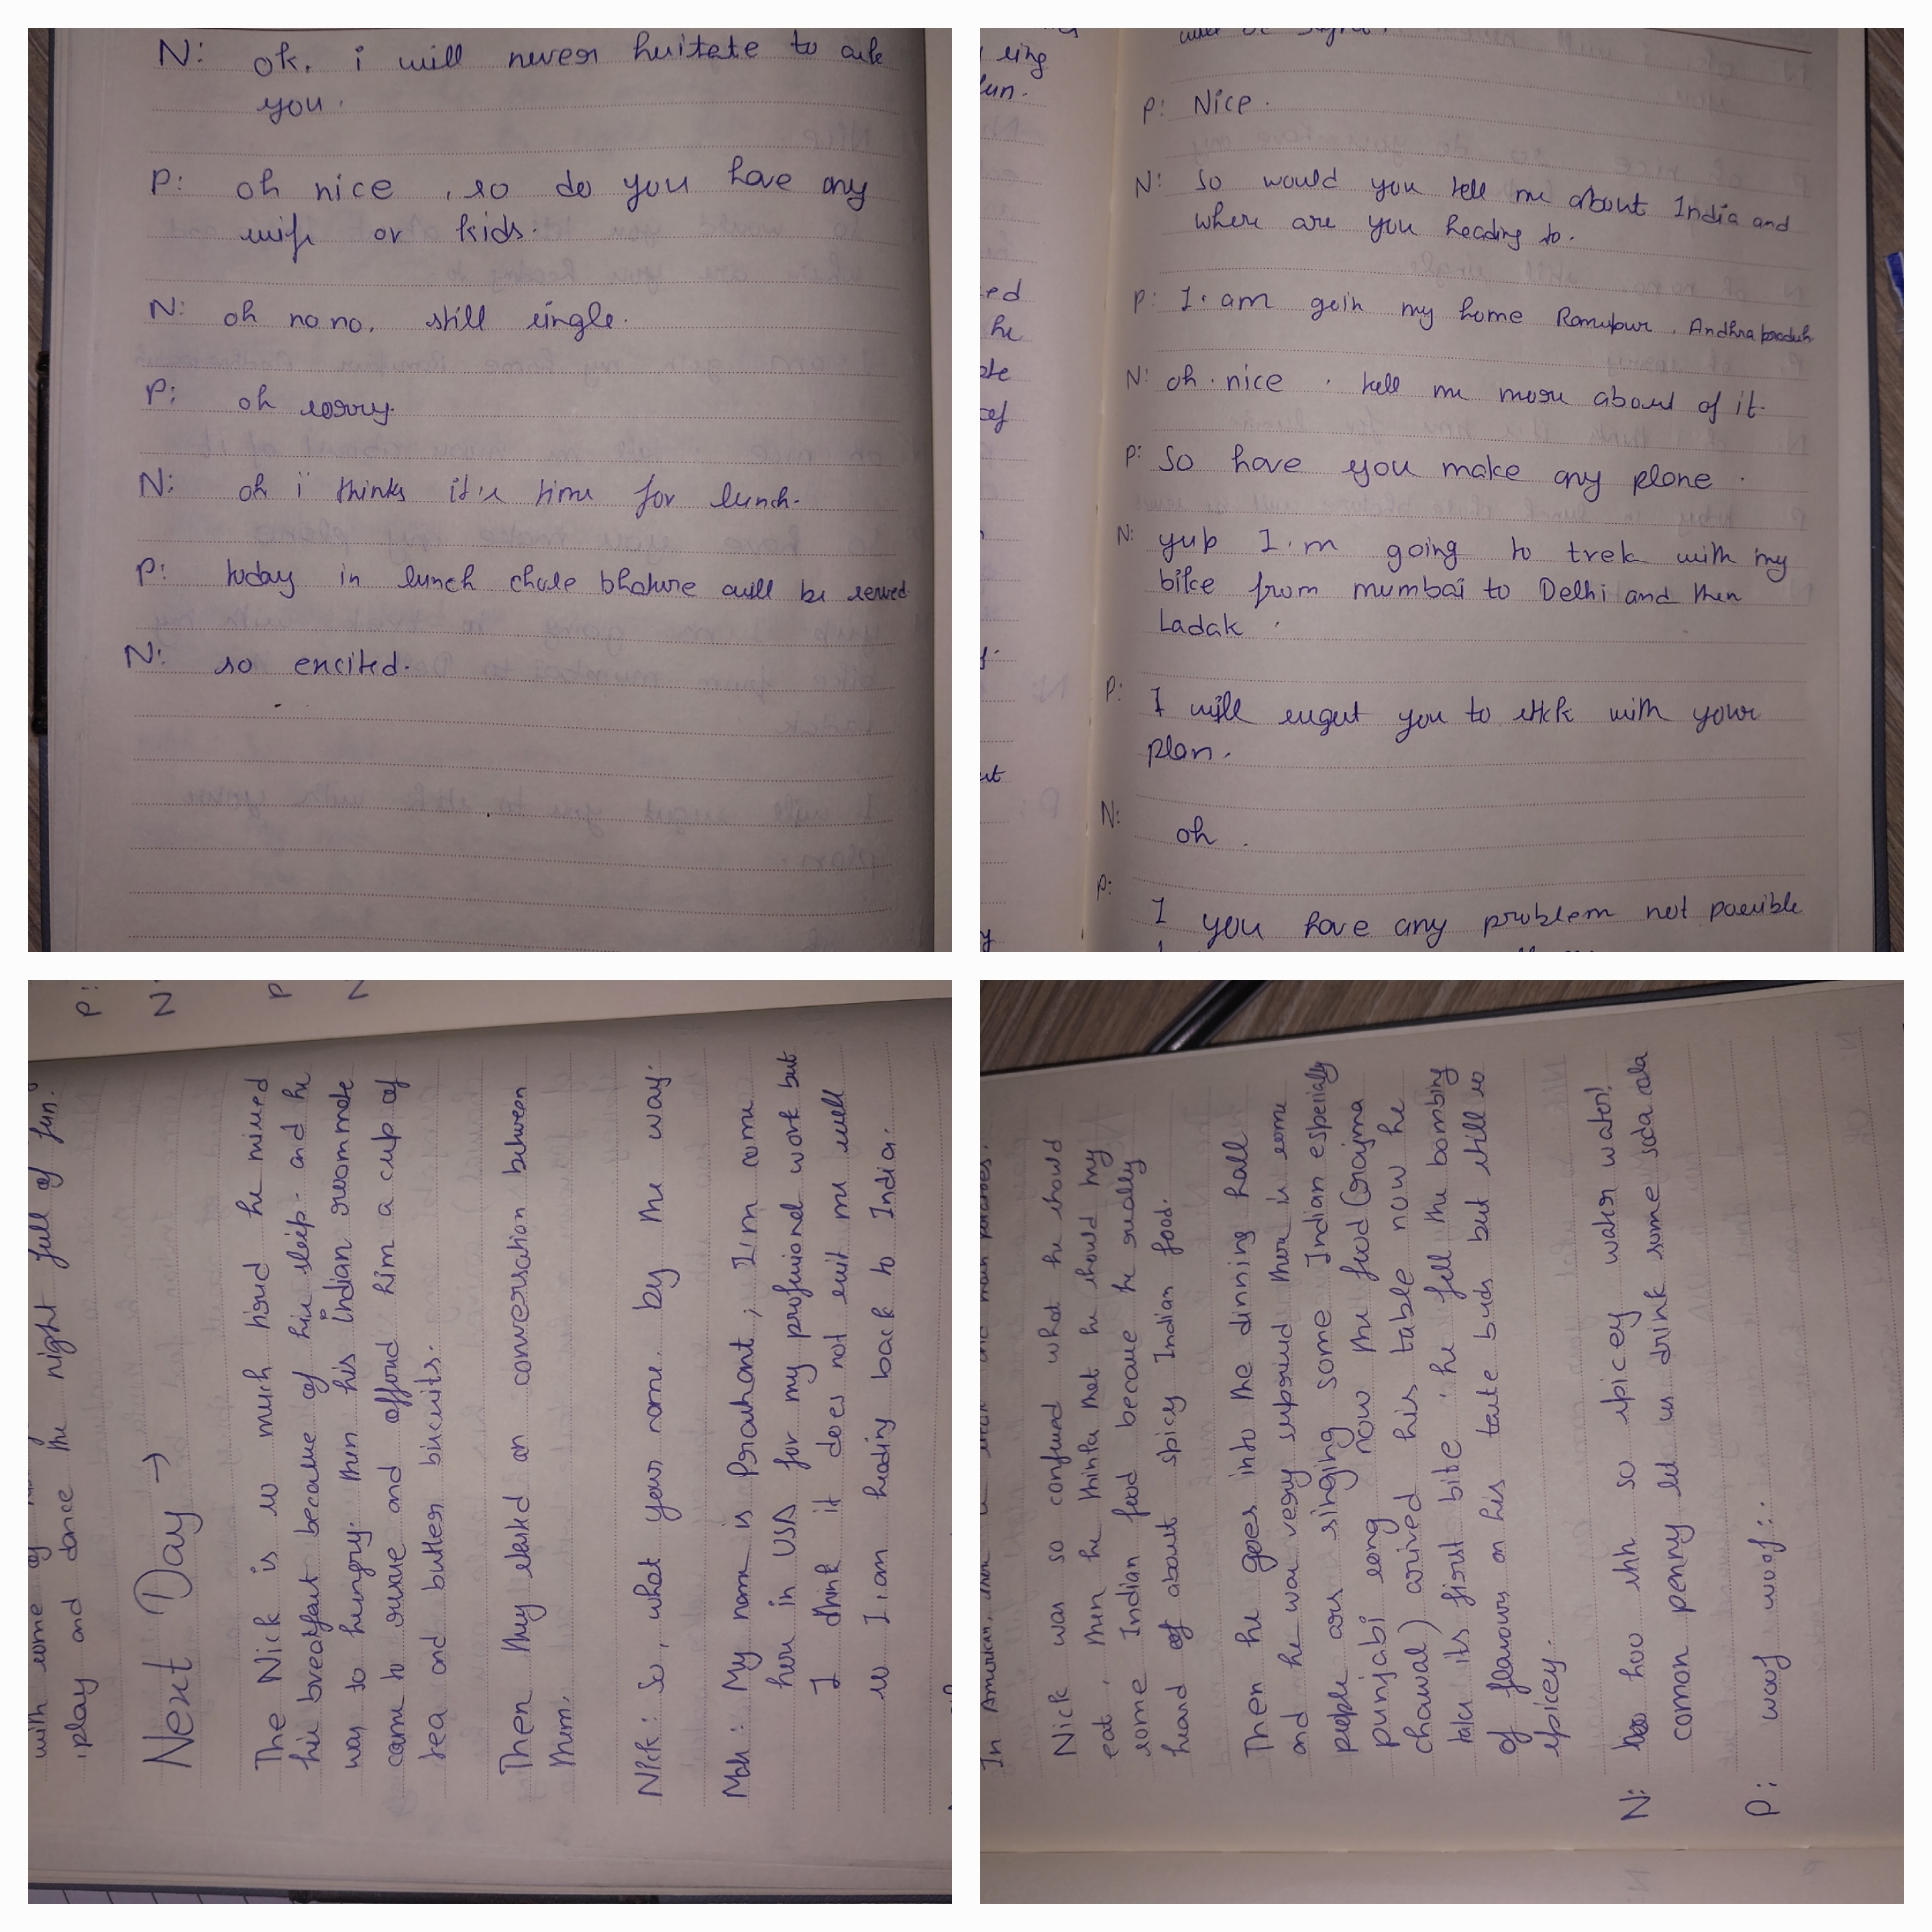 N: ok. i will never hesitate to ask
you.
P: oh nice , so do you have any
wife or kids.
N: oh no no. still single.
P: oh sorry.
N: oh i thinks it's time for lunch.
P: today in lunch chole bhature will be served
N: so encited.
ring
fun.
ed
he
P: Nice.
N: So would you tell me about India and
where are you heading to.
P: I. am goin my home Rampur. Andhra pradesh
N: oh. nice . tell me more about of it.
P: So have you make any plane.
N: yup I.m going to trek with my
bike from mumbai to Delhi and then
Ladak.
P: I will sugest you to stick with your
plan.
N: oh.
P: I you have any problem not possible
P: N P N
with some of
play and dance the night full of fun.
Next Day →
The Nick is so much tired he missed
his breakfast because of his sleep. and he
was to hungry. then his Indian roommate
came to rescue and offered him a cup of
tea and butter biscuits.
Then they started an conversation between
them.
Nick: So, what your name. by the way.
My name is Prashant, I.m come
here in USA for my profesional work but
I think it does not suit me well
so I.am heading back to India.
In American,
Nick was so confused what he should
eat, then he thinks that he should try
some Indian food because he really
heard of about spicy Indian food.
Then he goes into the dinning hall
and he was very suprised there is some
people are singing some Indian especially
punjabi song now the food (rajma
chawal) arived his table now he
take its first bite. he fell the bombing
of flavours on his taste buds but still so
spicey.
N: hoo shh so spicey water water!
comon penny let us drink some soda cola
P: woof woof..